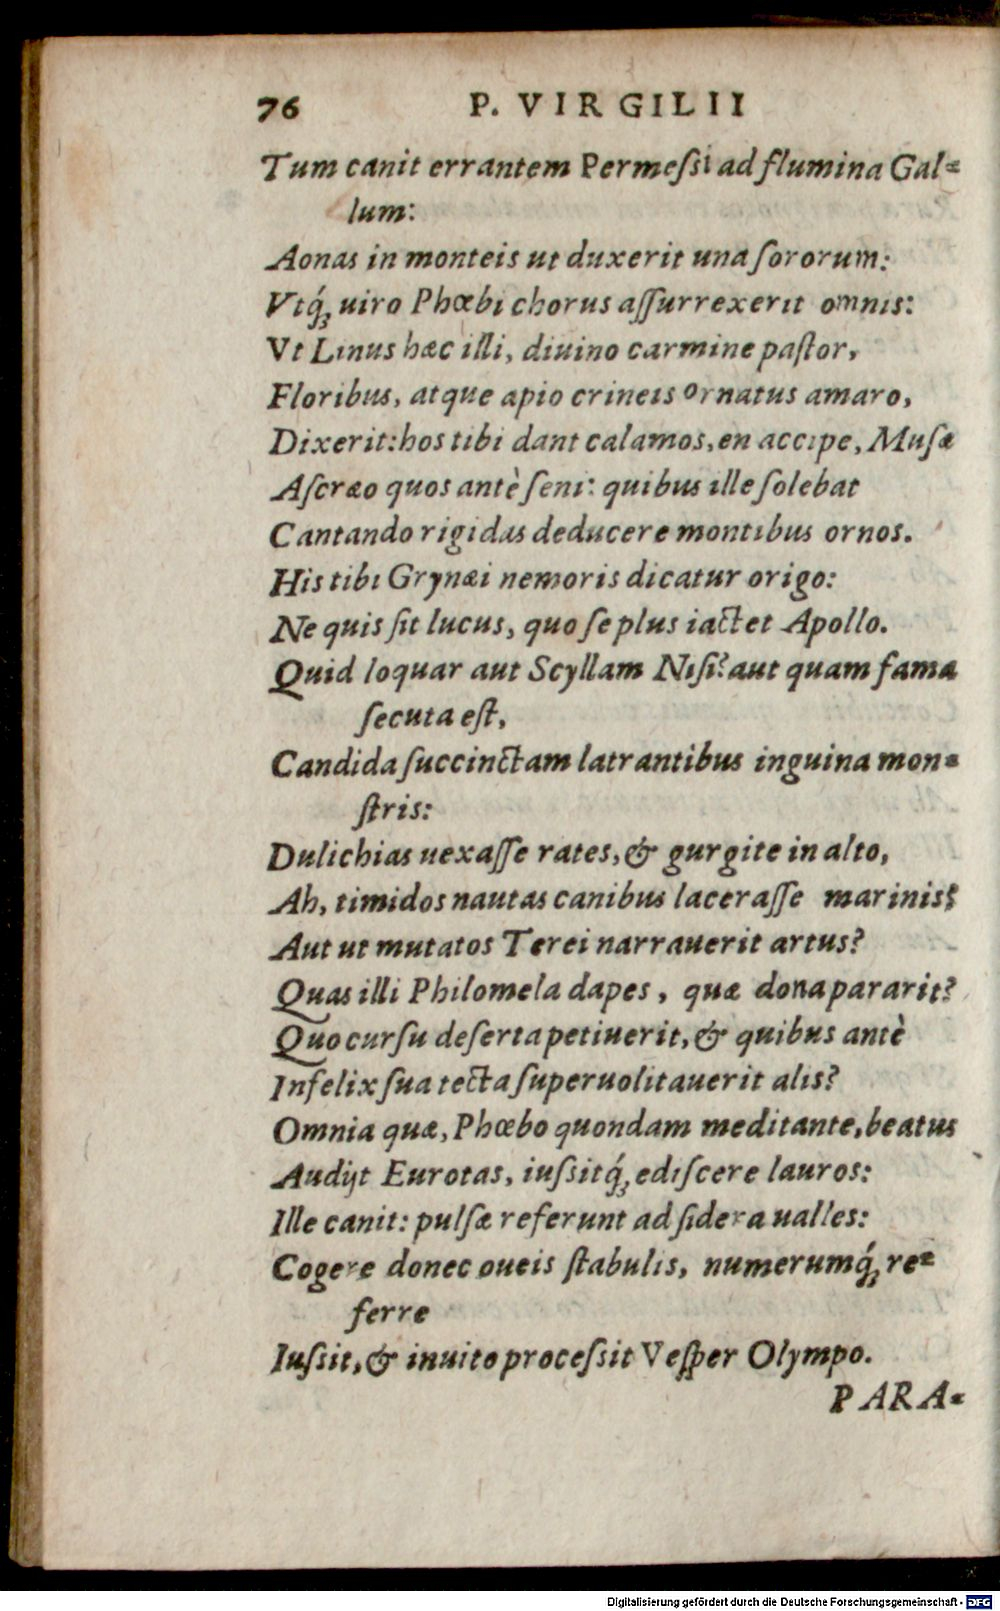 76 P. VIRGILII
Tum canit errantem Permeſsi ad flumina Gal-
lum:
Aonas in monteis ut duxerit una ſororum:
Vtq́; uiro Phœbi chorus aſſurrexerit omnis:
Vt Linus hæc illi, diuino carmine paſtor,
Floribus, atque apio crineis ornatus amaro,
Dixerit: hos tibi dant calamos, en accipe, Muſæ
Aſcræo quos antè ſeni: quibus ille ſolebat
Cantando rigidas deducere montibus ornos.
His tibi Grynæi nemoris dicatur origo:
Ne quis ſit lucus, quo ſe plus iactet Apollo.
Quid loquar aut Scyllam Niſi? aut quam fama
ſecuta eſt,
Candida ſuccinctam latrantibus inguina mon-
ſtris:
Dulichias uexaſſe rates, & gurgite in alto,
Ah, timidos nautas canibus laceraſſe marinis?
Aut ut mutatos Terei narrauerit artus?
Quas illi Philomela dapes, quæ dona pararit?
Quo curſu deſerta petiuerit, & quibus antè
Infelix ſua tecta ſuperuolitauerit alis?
Omnia quæ, Phœbo quondam meditante, beatus
Audijt Eurotas, iuſsitq́; ediſcere lauros:
Ille canit: pulſæ referunt ad ſidera ualles:
Cogere donec oueis ſtabulis, numerumq́; re-
ferre
Iuſsit, & inuito proceſsit Veſper Olympo.
PARA-
Digitalisierung gefördert durch die Deutsche Forschungsgemeinschaft - DFG